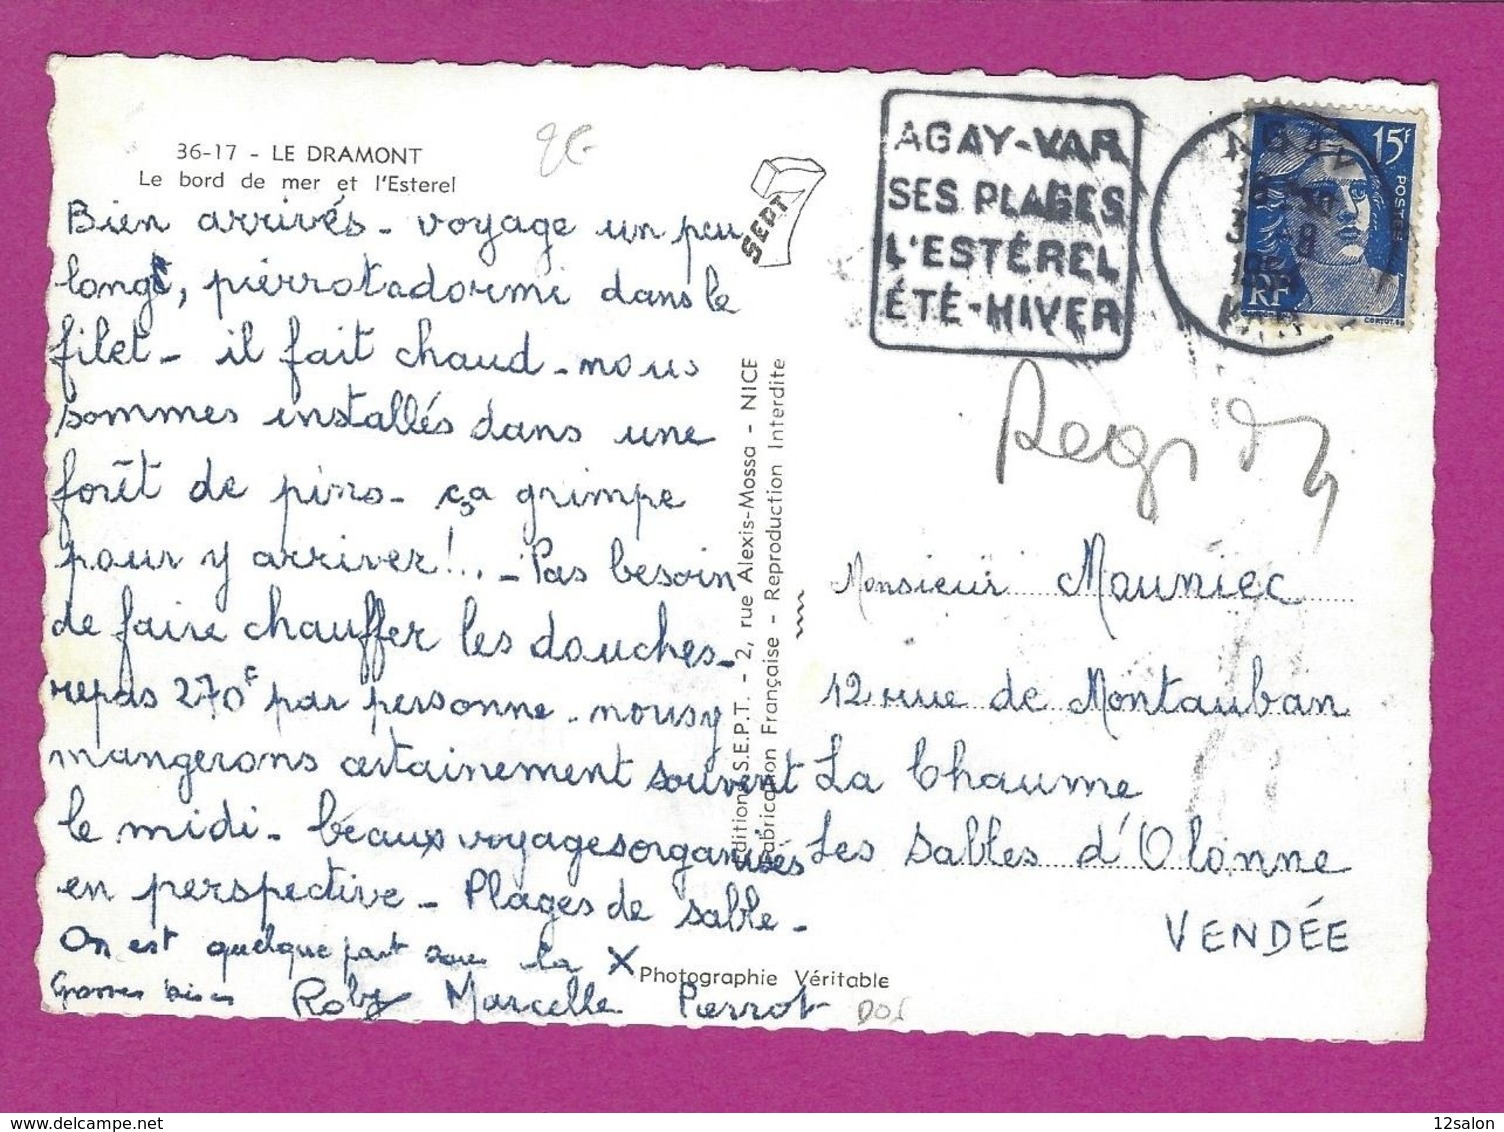 36-17 - LE DRAMONT
Le bord de mer et l'Esterel
Bien arrivés - voyage un peu
long, pierrot a dormi dans le
filet - il fait chaud - nous
sommes installés dans une
forêt de pins - ça grimpe
pour y arriver!.. - Pas besoin
de faire chauffer les douches -
repas 270F par personne - nous y
mangerons certainement souvent
le midi - beaux voyages organisés
en perspective - Plages de sable -
On est quelque part sous la X
Grosses bises Roby Marcelle Pierrot
SEPT
7
Editions S.E.P.T. - 2, rue Alexis-Mossa - NICE
Fabrication Française - Reproduction Interdite
Photographie Véritable
AGAY-VAR
SES PLAGES
L'ESTÉREL
ÉTÉ-HIVER
AGAY
VAR
15F
POSTES
RF
Monsieur Mouniec
12 rue de Montauban
La Chaume
Les Sables d'Olonne
VENDÉE
12salon